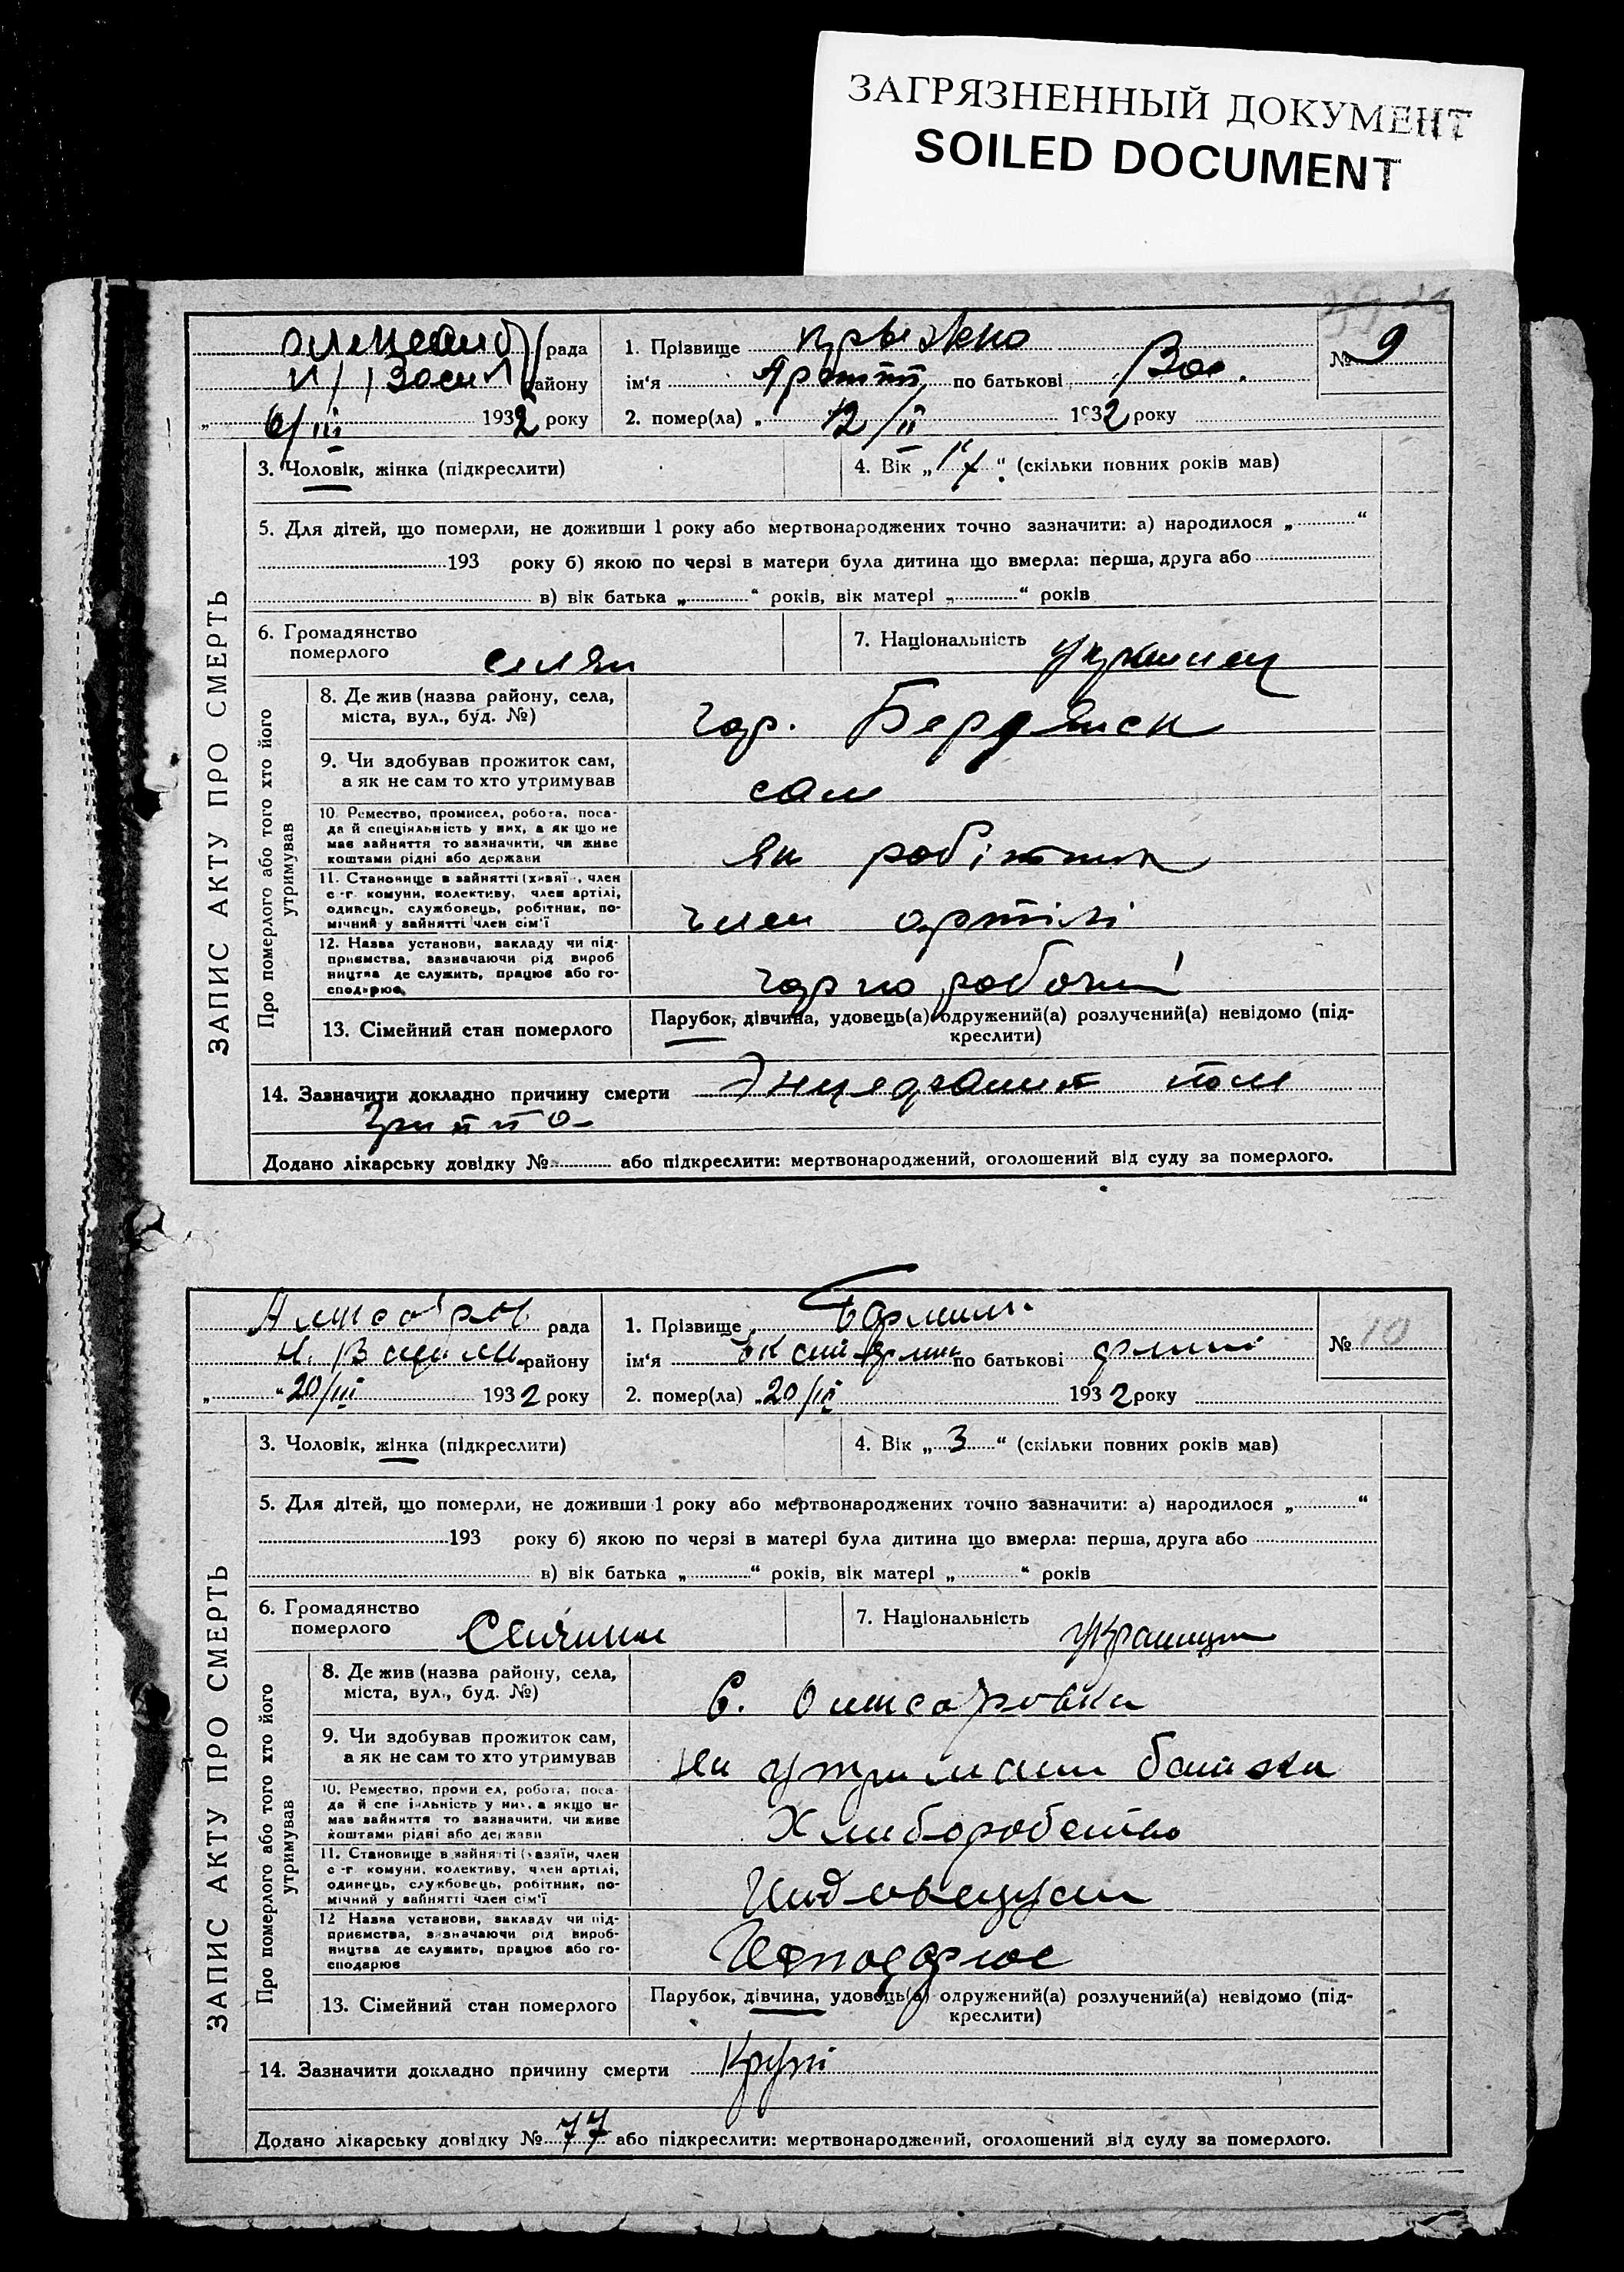 ЗАГРЯЗНЕННЫЙ ДОКУМЕНТ
SOILED DOCUMENT
рада
1. Прізвище
№ 9
району
ім'я по батькові Вас.
6/III 1932 року
2. помер(ла) „ 12/II 1932 року
ЗАПИС АКТУ ПРО СМЕРТЬ
3. Чоловік, жінка (підкреслити)
4. Вік „ 17 “ (скільки повних років мав)
5. Для дітей, що померли, не доживши 1 року або мертвонароджених точно зазначити: а) народилося „ “
193 року б) якою по черзі в матери була дитина що вмерла: перша, друга або
в) вік батька „ “ років, вік матері „ “ років
6. Громадянство
померлого селян
7. Національність украинец
Про померлого або того хто його
утримував
8. Де жив (назва району, села,
міста, вул., буд. №)
гор. Бердянск
9. Чи здобував прожиток сам,
а як не сам то хто утримував
сам
10. Ремество, промисел, робота, поса-
да й спеціяльність у них, а як що не
має зайняття то зазначити, чи живе
коштами рідні або держави
як робітник
11. Становище в зайнятті (хазяїн, член
с-г. комуни, колективу, член артілі,
одинець, службовець, робітник, по-
мічний у зайнятті член сім'ї
член артілі
12. Назва установи, закладу чи під-
приємства, зазначаючи рід вироб
ництва де служить, працює або го-
сподарює
13. Сімейний стан померлого
Парубок, дівчина, удовець(а) одружений(а) розлучений(а) невідомо (під-
креслити)
14. Зазначити докладно причину смерти
Додано лікарську довідку № або підкреслити: мертвонароджений, оголошений від суду за померлого.
рада
1. Прізвище
№ 10
району
ім'я по батькові
„ “ 20/III 1932 року
2. помер(ла) „ 20/III 1932 року
ЗАПИС АКТУ ПРО СМЕРТЬ
3. Чоловік, жінка (підкреслити)
4. Вік „ 3 “ (скільки повних років мав)
5. Для дітей, що померли, не доживши 1 року або мертвонароджених точно зазначити: а) народилося „ “
193 року б) якою по черзі в матері була дитина що вмерла: перша, друга або
в) вік батька „ “ років, вік матері „ “ років
6. Громадянство
померлого
7. Національність
Про померлого або того хто його
утримував
8. Де жив (назва району, села,
міста, вул., буд. №)
9. Чи здобував прожиток сам,
а як не сам то хто утримував
на батька
10. Ремество, промисел, робота, поса-
да й спеціяльність у них, а якщо не
має зайняття то зазначити, чи живе
коштами рідні або держави
11. Становище в зайнятті (хазяїн, член
с-г комуни, колективу, член артілі,
одинець, службовець, робітник, по-
мічний у зайнятті член сім'ї
12 Назва установи, закладу чи під-
приємства, зазначаючи рід вироб-
ництва де служить, працює або го-
сподарює
13. Сімейний стан померлого
Парубок, дівчина, удовець(а) одружений(а) розлучений(а) невідомо (під-
креслити)
14. Зазначити докладно причину смерти Круп
Додано лікарську довідку № 77 або підкреслити: мертвонароджений, оголошений від суду за померлого.